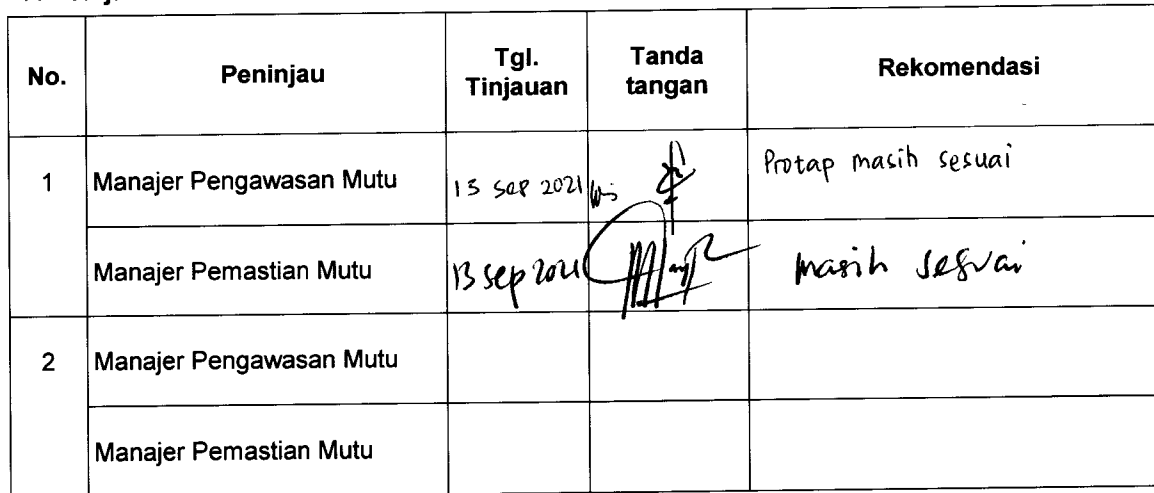 No. Peninjau Tgl. Tinjauan Tanda tangan Rekomendasi
1 Manajer Pengawasan Mutu 13 sep 2021 Protap masih sesuai
Manajer Pemastian Mutu 13 sep 2021 masih sesuai
2 Manajer Pengawasan Mutu
Manajer Pemastian Mutu